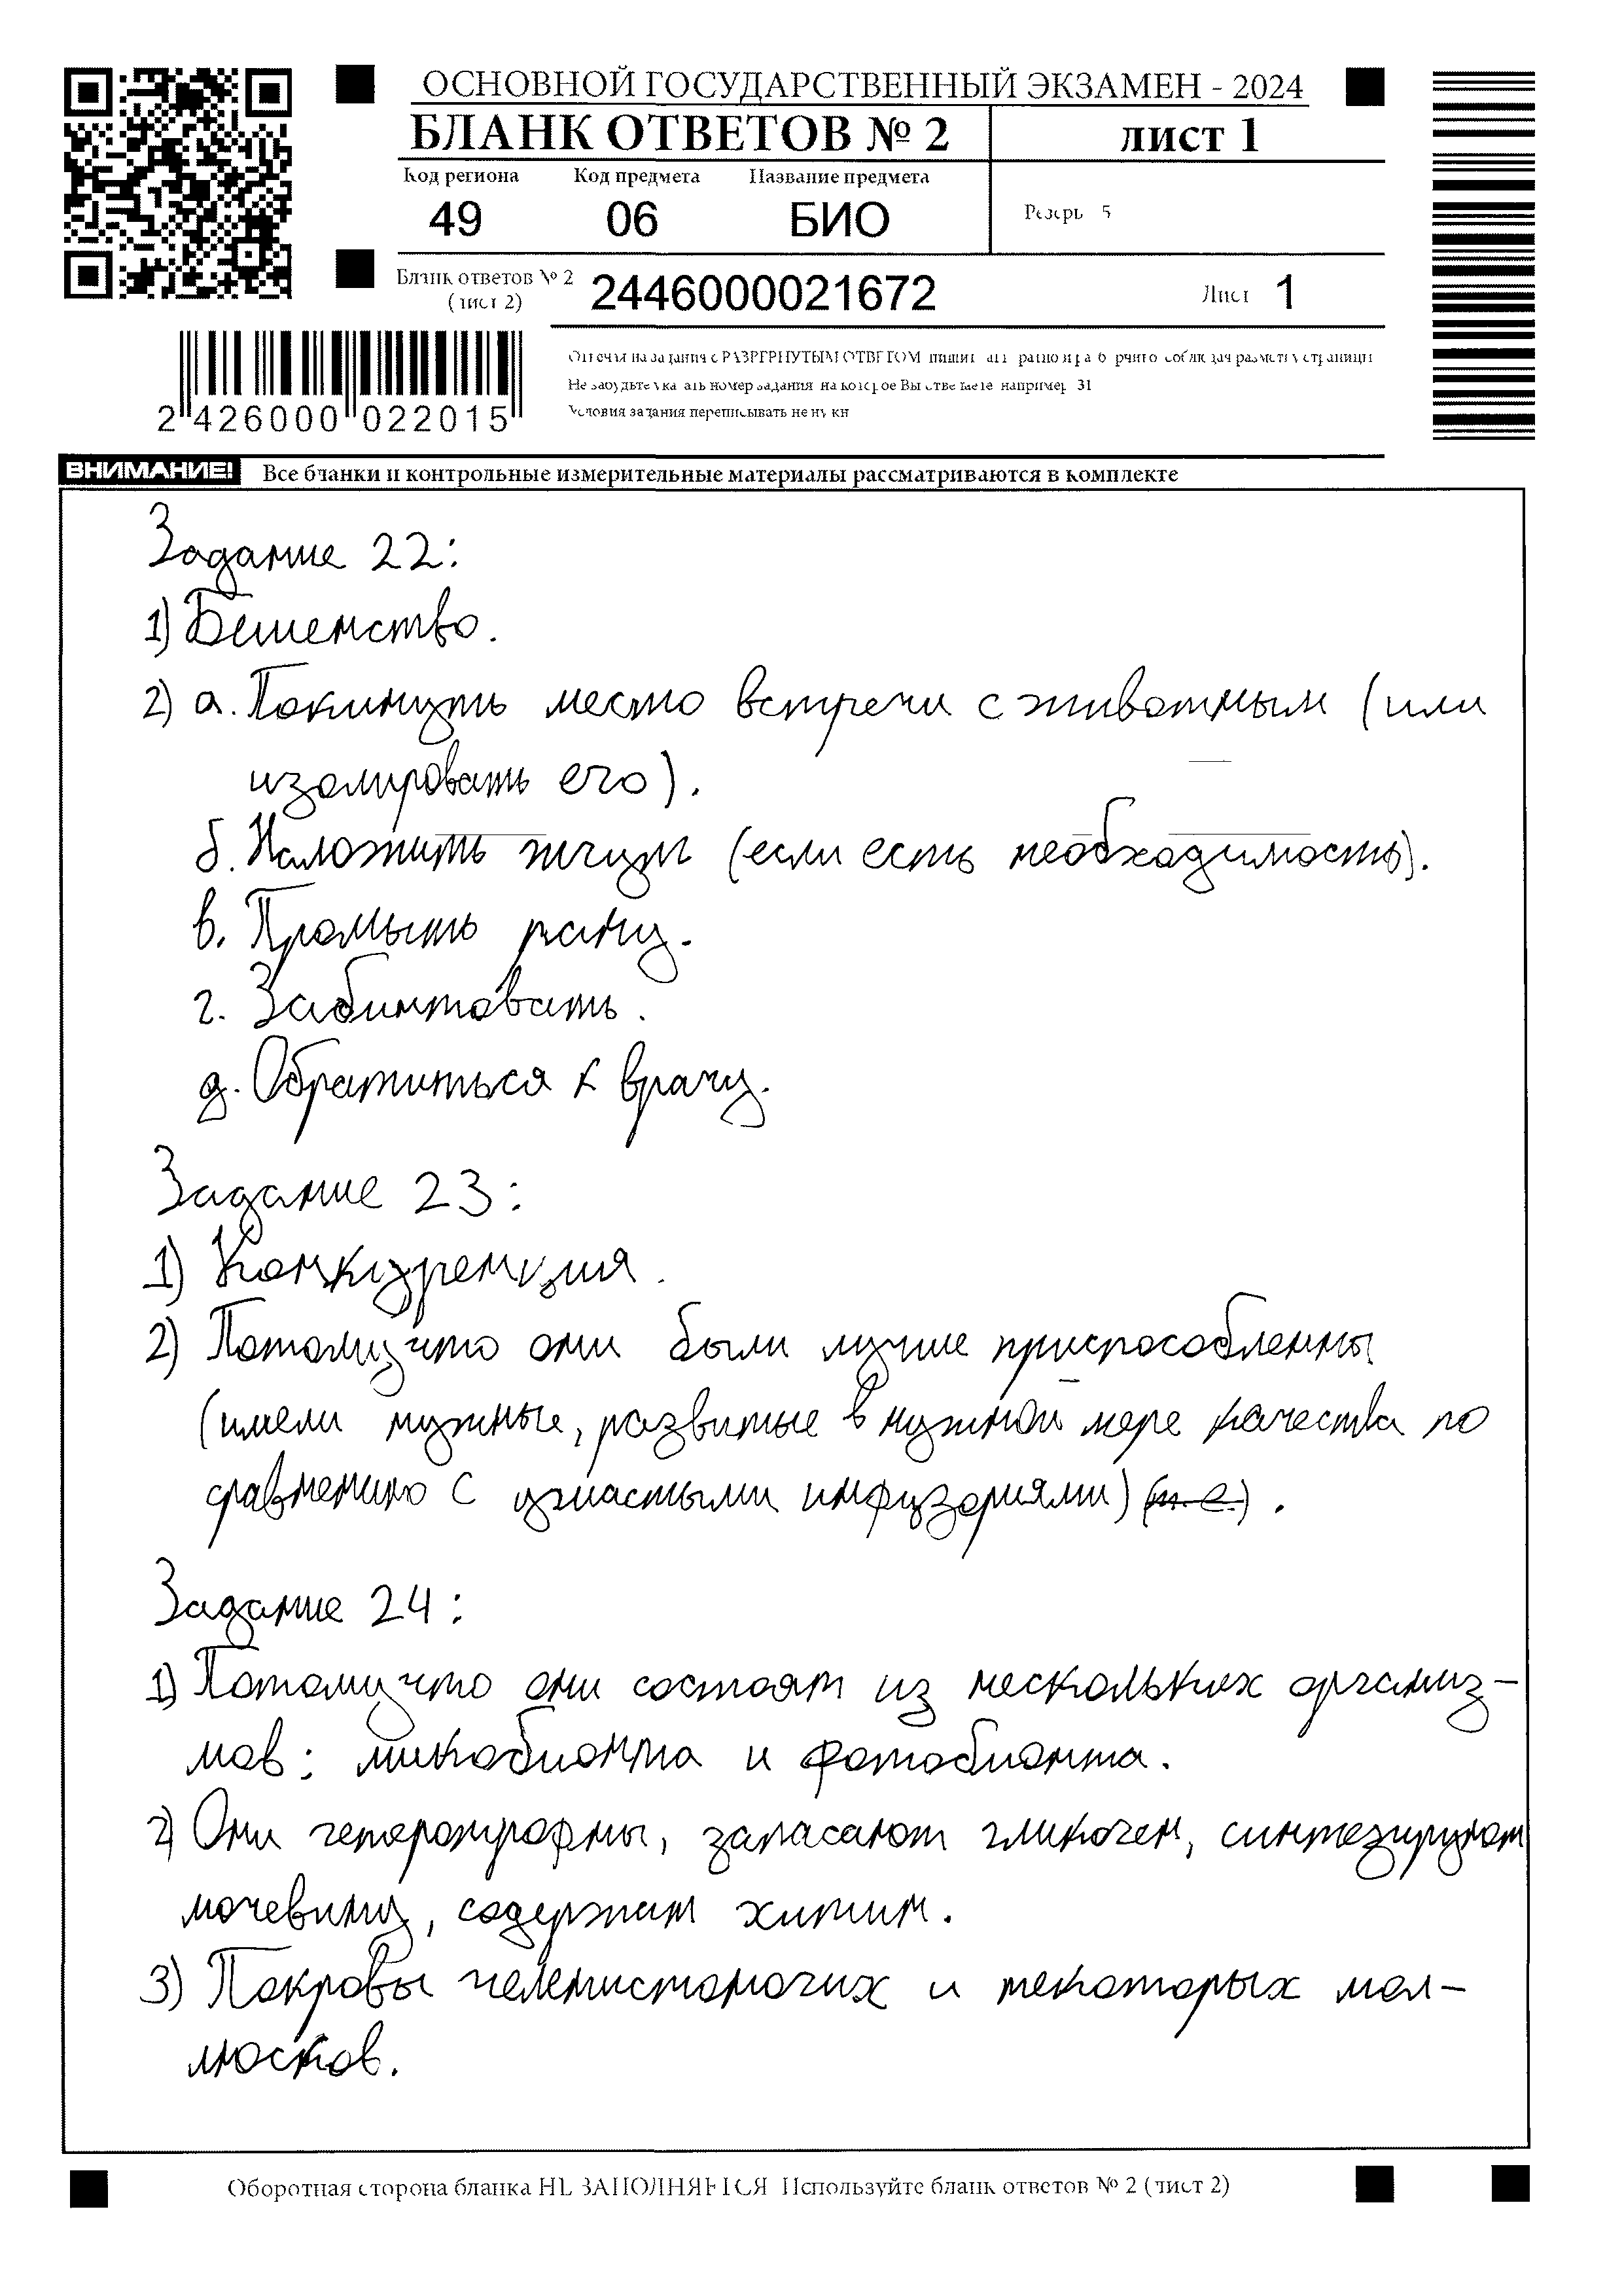 ОСНОВНОЙ ГОСУДАРСТВЕННЫЙ ЭКЗАМЕН - 2024
БЛАНК ОТВЕТОВ № 2
ЛИСТ 1
Код региона Код предмета Название предмета
49 06 БИО
Резерв 5
Бланк ответов № 2
(лист 2)
2446000021672
Лист 1
2 426000 022015
Ответы на задания с РАЗВЕРНУТЫМ ОТВЕТОМ пишите аккуратно и разборчиво, соблюдая разметку страницы
Не забудьте указать номер задания, на которое Вы отвечаете, например, 31
Условия задания переписывать не нужно
ВНИМАНИЕ! Все бланки и контрольные измерительные материалы рассматриваются в комплекте
Задание 22:
1) Бешенство.
2) а. Покинуть место встречи с животным (или
изолировать его).
б. Наложить жгут (если есть необходимость).
в. Промыть рану.
г. Забинтовать.
д. Обратиться к врачу.
Задание 23:
1) Конкуренция.
2) Потому что они были лучше приспособленны
(имели нужные, развитые в нужной мере качества по
сравнению с ушастыми инфузориями) (т. е.).
Задание 24:
1) Потому что они состоят из нескольких организ-
мов: микобионта и фотобионта.
2) Они гетеротрофны, запасают гликоген, синтезируют
мочевину, содержат хитин.
3) Покровы членистоногих и некоторых мол-
люсков.
Оборотная сторона бланка НЕ ЗАПОЛНЯЕТСЯ Используйте бланк ответов № 2 (лист 2)